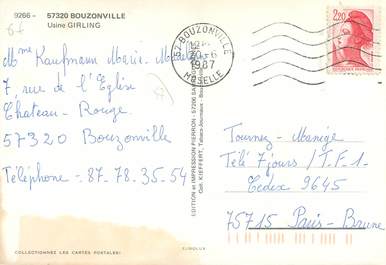 9266 - 57320 BOUZONVILLE
Usine GIRLING
Mme Kaufmann Marie-
7, rue de l'Eglise
Chateau-Rouge
57320 Bouzonville
Téléphone - 87-78-35-54
COLLECTIONNEZ LES CARTES POSTALES!
57 BOUZONVILLE
20-6
1987
MOSELLE
EDITION et IMPRESSION PIERRON - 57206
Coll. KIEFFERT, Tabacs-Journaux -
EUROLUX
2,20
Tournez-Manège
Télé 7 jours / T.F.1-
Cedex 9645
75715 Paris-Brune